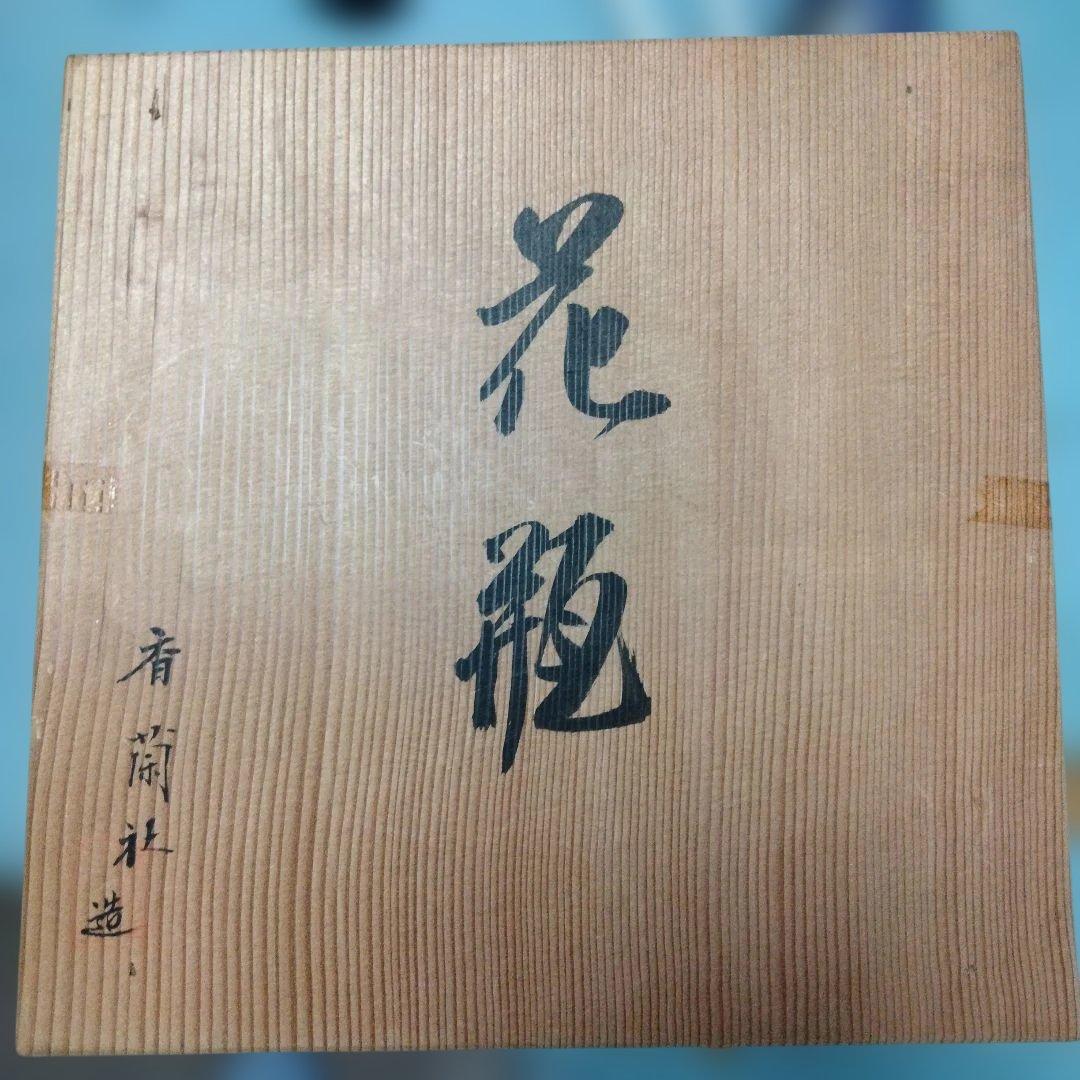 花瓶
香蘭社造